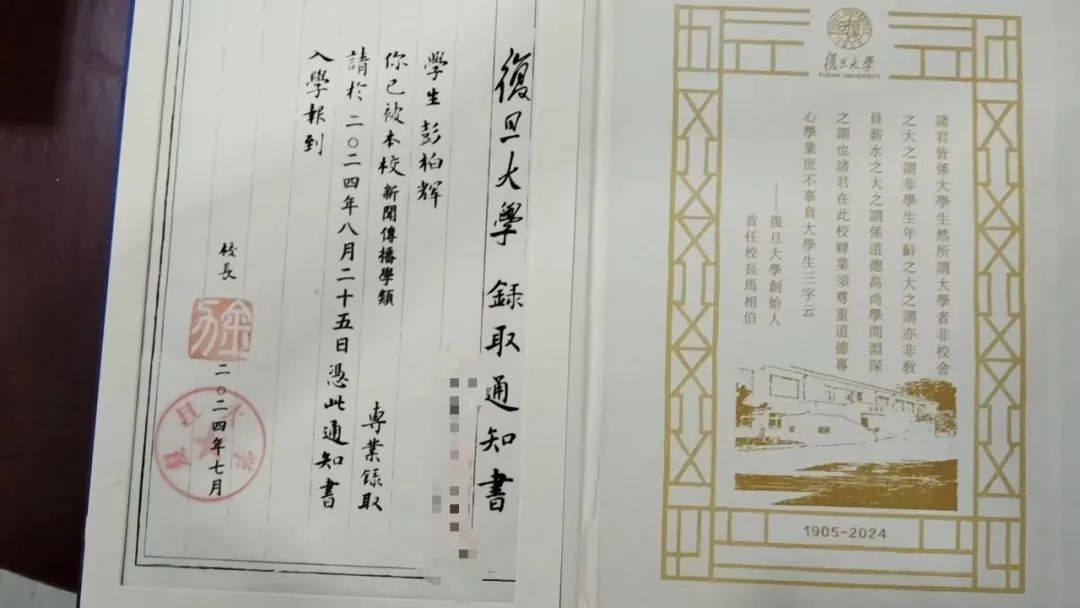 復旦大學 錄取通知書
學生彭柏辉
你已被本校新聞傳播學類
專業錄取
請於二〇二四年八月二十五日憑此通知書
入學報到
校長
金力
二〇二四年七月
復旦大學
復旦大學
FUDAN UNIVERSITY
諸君皆係大學生然所謂大學者非校舍
之大之謂非學生年齡之大之謂亦非敎
員薪水之大之謂係道德高尚學問淵深
之謂也諸君在此校肄業須尊重道德專
心學業庶不辜負大學生三字云
——復旦大學創始人
首任校長馬相伯
1905-2024